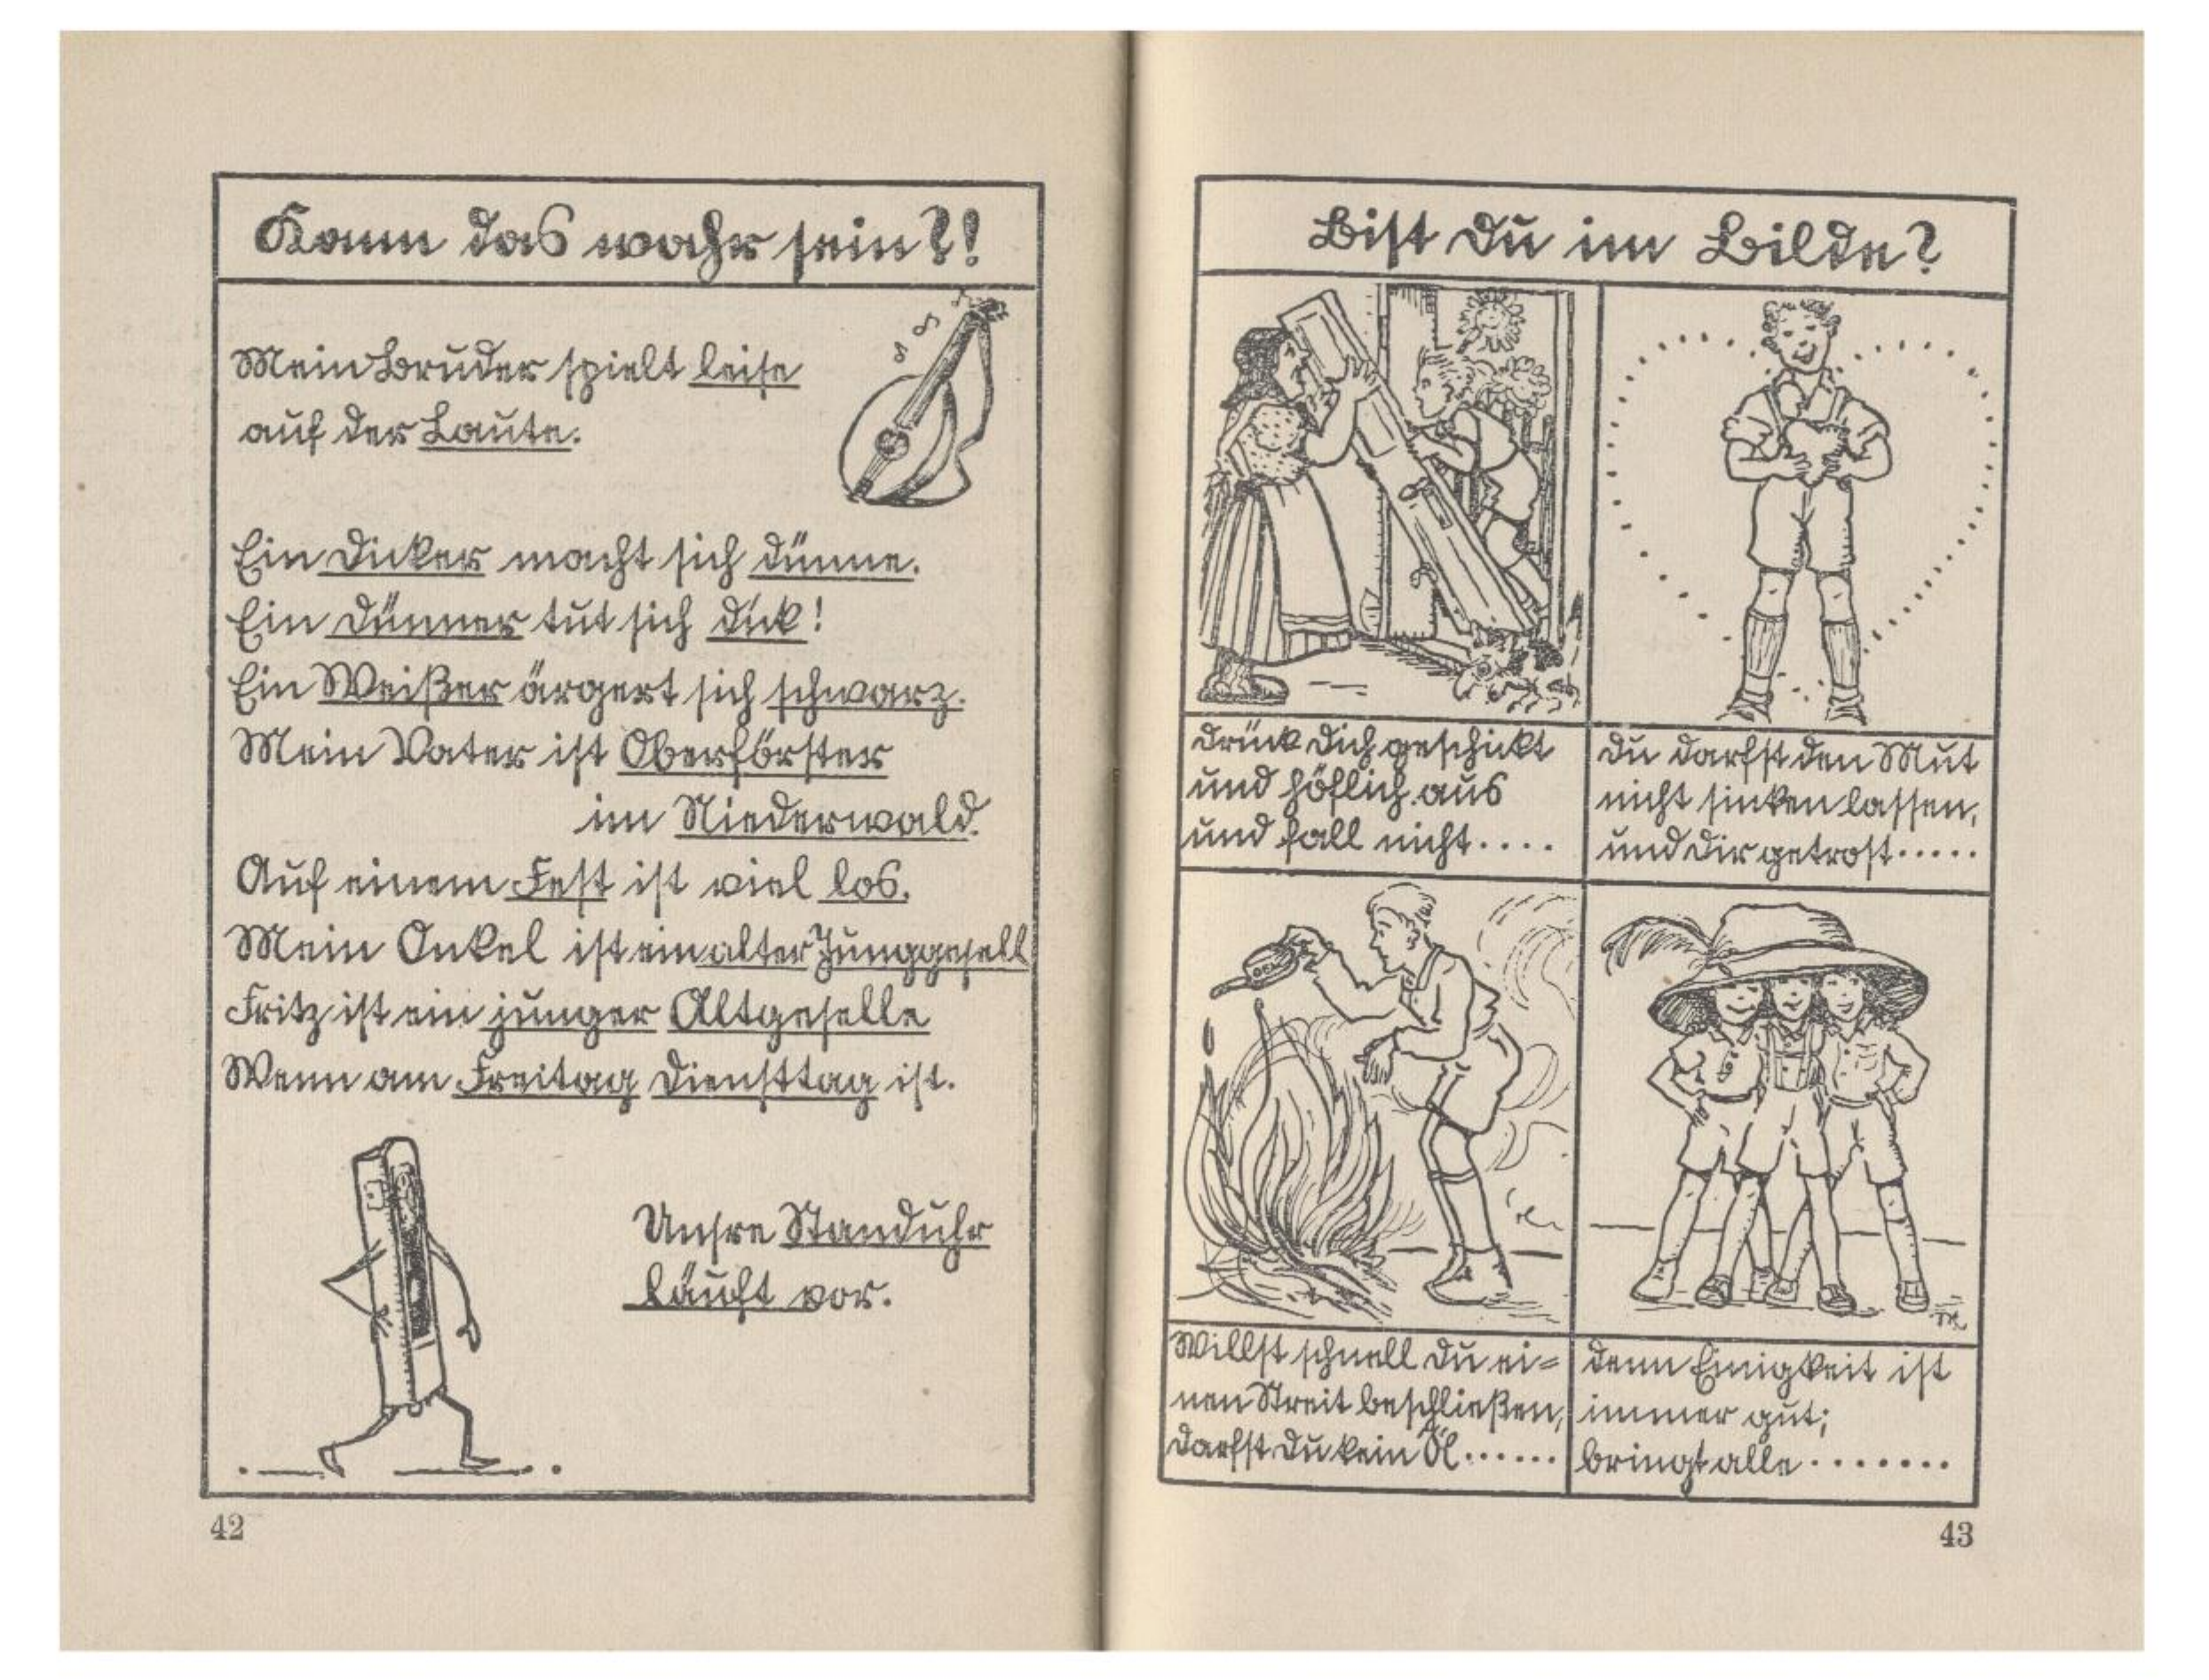 Kann das wahr sein?!
Mein Bruder spielt leise
auf der Laute.
Ein Dicker macht sich dünne.
Ein Dünner tut sich dick!
Ein Weißer ärgert sich schwarz.
Mein Vater ist Oberförster
im Niederwald.
Auf einem Fest ist viel los.
Mein Onkel ist ein alter Junggesell
Fritz ist ein junger Altgeselle
Wenn am Freitag Diensttag ist.
Unsre Standuhr
läuft vor.
42
Bist Du im Bilde?
Drück Dich geschickt
und höflich aus
und fall nicht....
Du darfst den Mut
nicht sinken lassen,
und Dir getrost.....
Willst schnell Du ei=
nen Streit beschließen,
darfst Du kein Öl......
Denn Einigkeit ist
immer gut;
bringt alle........
43